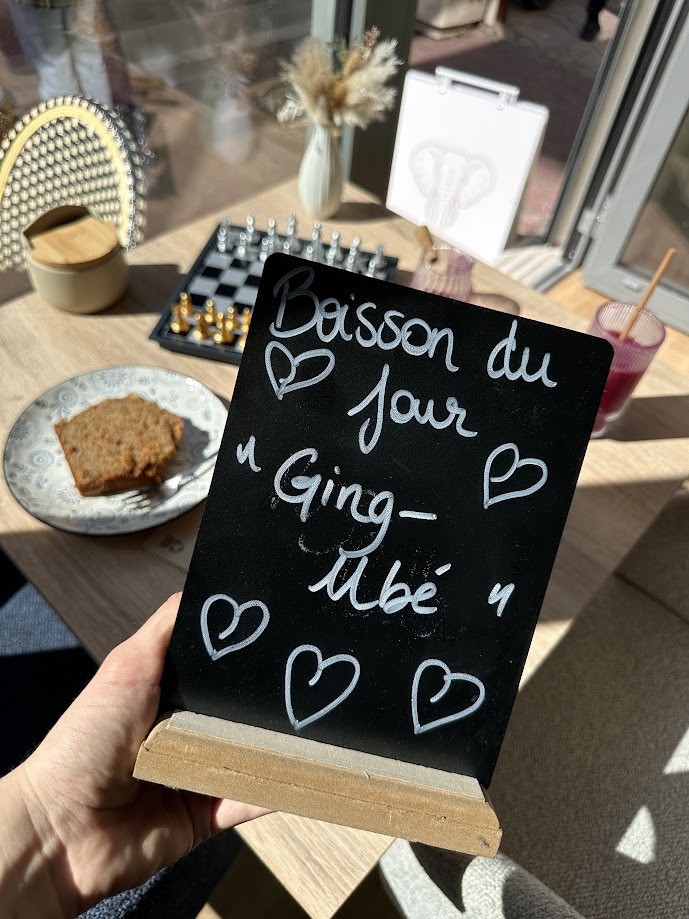 Boisson du
jour
"Ging-
Mbé"